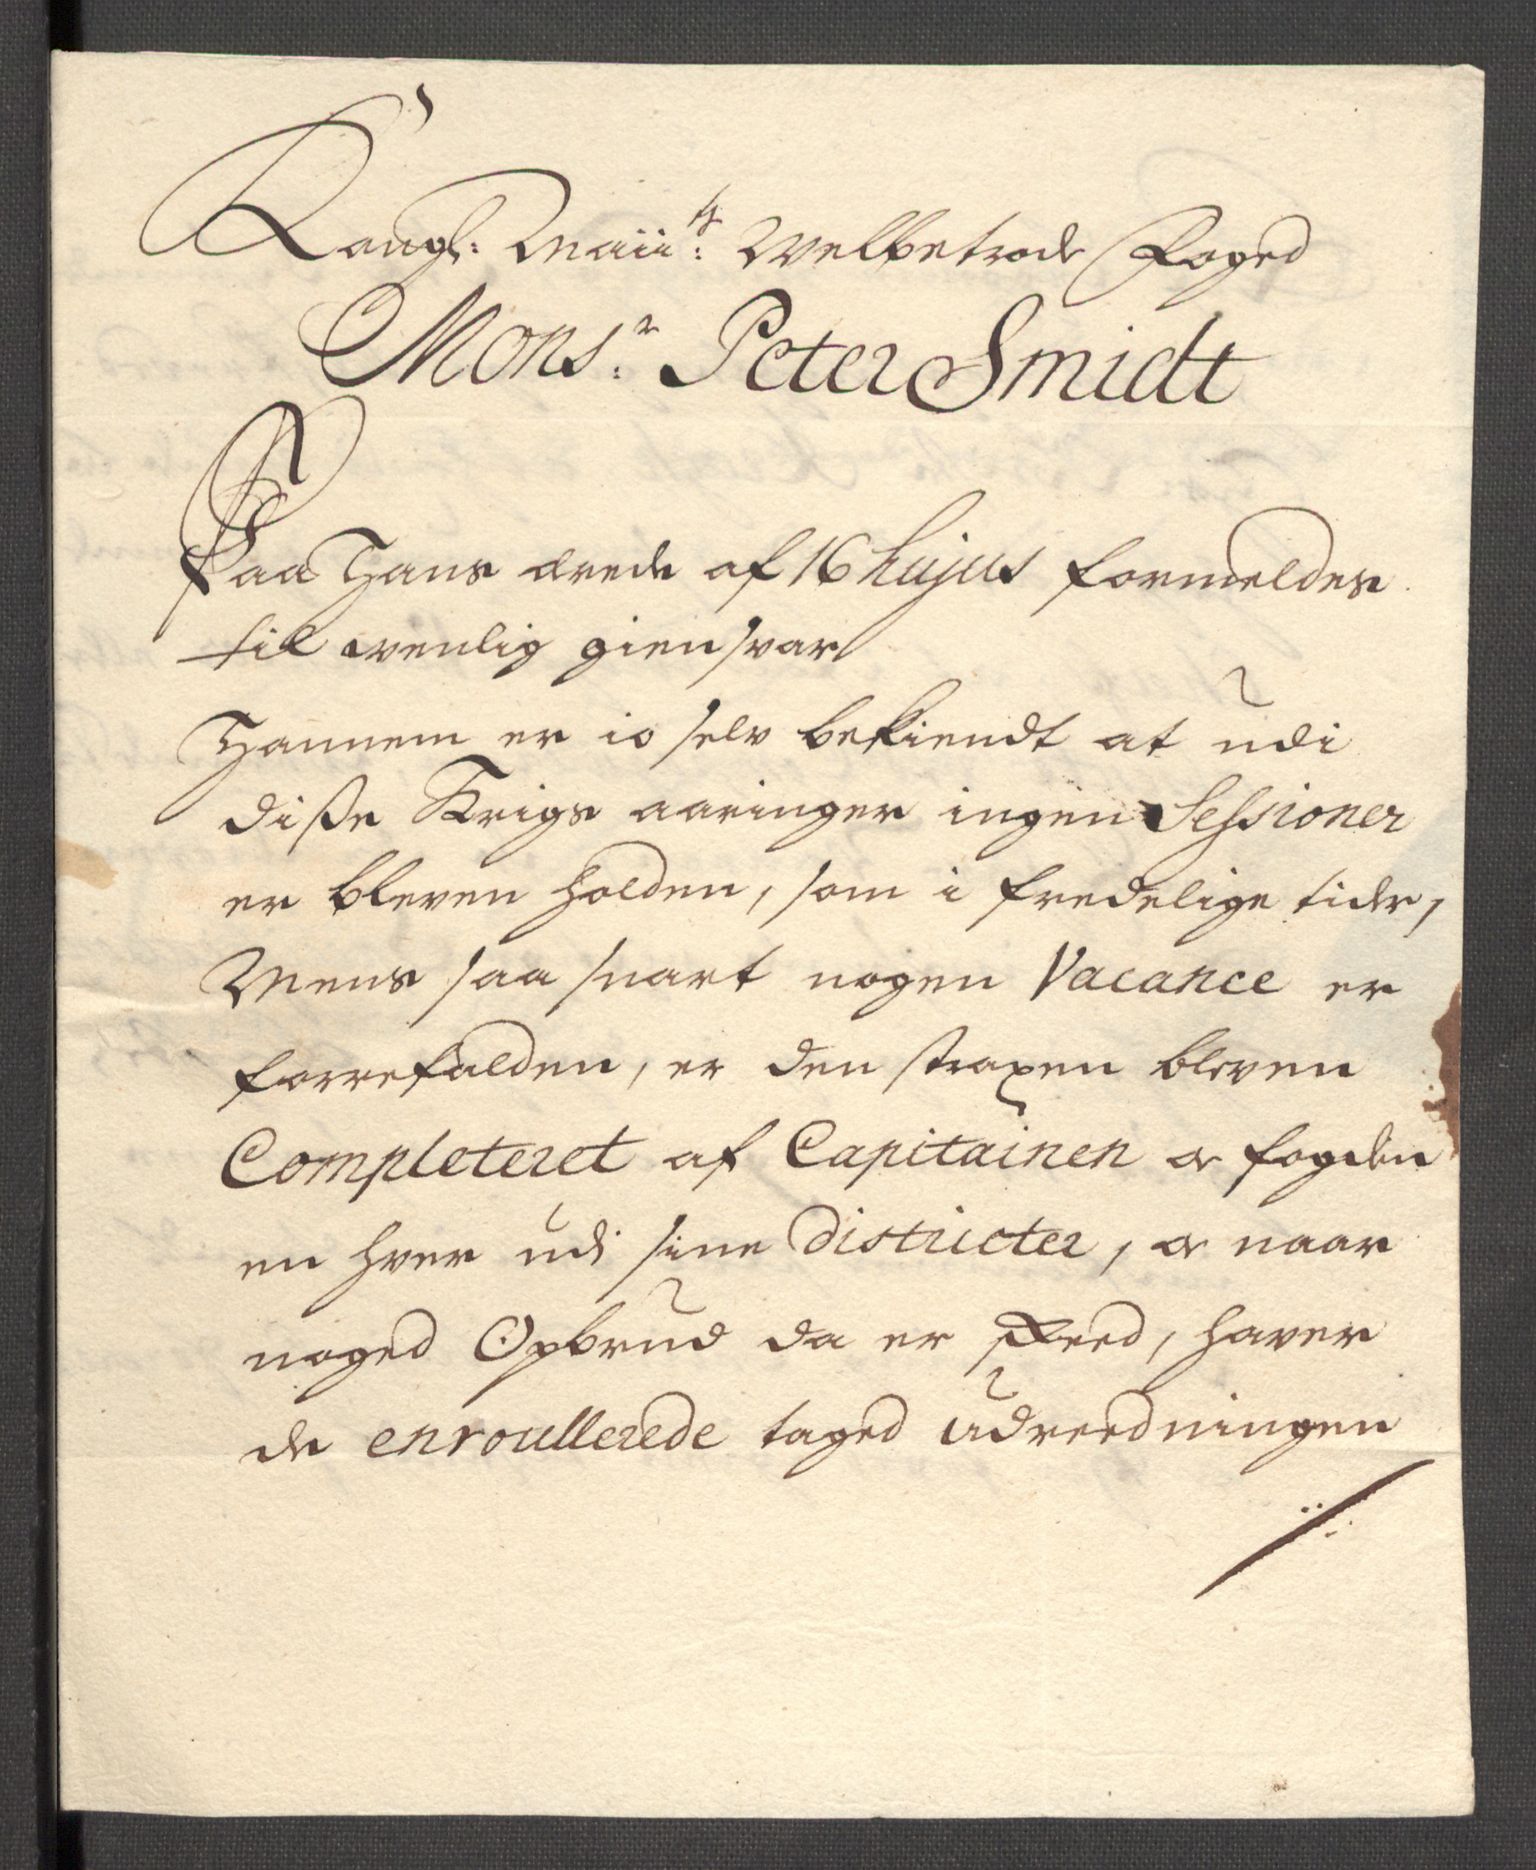 Kongl: Maii:ts Welbetrode Foged
Monsr: Peter Smidt
Paa Hans ærede af 16 hujus formeldes
til wenlig giensvar
Hannem er io selv bekiendt at udi
disse Krigs aaringer ingen Sessioner
er bleven holden, som i fredelige tider,
Mens saa snart nogen Vacance er
forrefalden, er den straxen bleven
Completeret af Capitainen og fogden
en hver udi sine districter, og naar
noged Opbrud da er skeed, haver
de enroullerede taged udreedningen